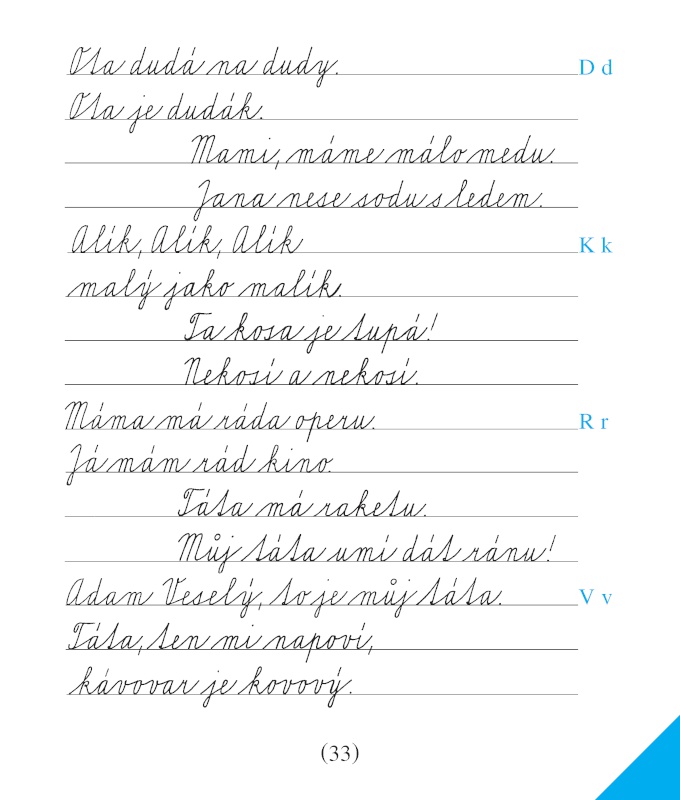 Ota dudá na dudy. D d
Ota je dudák.
Mami, máme málo medu.
Jana nese sodu s ledem.
Alík, Alík, Alík K k
malý jako malík.
Ta kosa je tupá!
Nekosí a nekosí.
Máma má ráda operu. R r
Já mám rád kino.
Táta má raketu.
Můj táta umí dát ránu!
Adam Veselý, to je můj táta. V v
Táta, ten mi napoví,
kávovar je kovový.
(33)